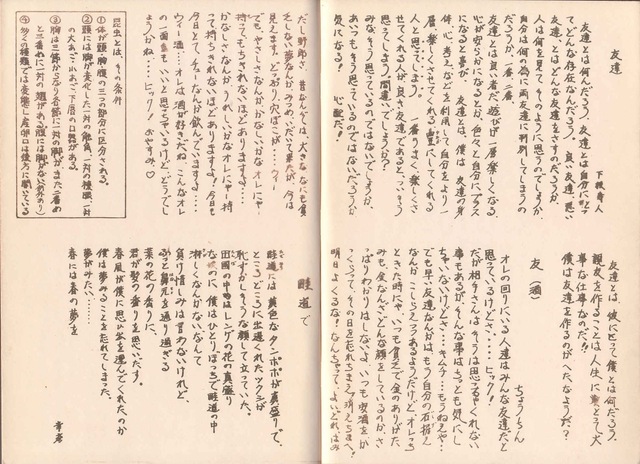 友達
下根寿人
友達とは何んだろう。友達とは自分にとっ
てどんな存在なんだろう。良い友達、悪い
人は何を見てそのように思うのでしょうか
自分は何の為に両友達に判別してしまうの
だろうか。一番二番、
友達とは良い者だ。遊びが一層楽しくなる。
心が安らかになるとか、色々と自分にプラス
になると事が
友達とは、僕は
人と思ってしまう。一番うまく楽しくさ
せてくれる人が良き友達であると、ついそう
思ってしまう。間違いでしょうか?
みな、そう思っているのではないでしょうか。
あいつもそう思っているのではないだろうか
気になる!心配だ!
友達とは、彼にとって僕とは何だろう。
親友を作ることは人生に於とう大
事な仕事なのだ!!
僕は友達を作るのがへたなようだ?
友(酒)
ちょうしゃん
オレの回りにいる人達はみんな友達だと
思っているけどさ……ヒック!!
だが相手さんはそうは思ってくれない
事もあるが、そんな事はちっとも気にし
ちゃいないけどさ…キムチ…もうねえや…
でも早い友達なんかは、もう自分の石拐え
なんかこしらえつつあるようだけど、オレっち
ときた時にゃ、いつも貧乏で金のありがた
みも、金なんざどんな顔をしているのか、さ
っぱりわかりはしないよ。いつも安酒をか
っくらって、その日を忘れちまえ、消えちまえ!
明日よくるな!なんちゃって、よいどれはみ
だし野郎さ、昔なんぞは、大きななにも負
をしない夢なんか、みつめ、いだいて来たが、今は
見えます。どっぷり穴ばこが……ウィー
でも、やさしいなんか、かなしいかな、オレにゃ
持ってもちきれないほどありますよ……
かなしさなんか、うれしいかなオレにゃ持
って持ちきれないほどありますよ!今日も
今日とて、チューなんか飲んでますよ……
ウィー酒…オレは酒が好きだね、こんなオレ
の一面も、いいと思っちゃいるけど、どうでし
ょうかね…ヒック!おやすみ♡
昆虫とは、その条件
①体が頭・胸・腹の三つの部分に区分される。
②頭には脚が変化した一対の触角、一対の複眼、一対
の大あごと小あごと下唇の口器がある。
③胸は三体節からなり各節に一対の脚が、また二番め
と三番めに一対の翅がある、腹には脚がない(例外あり)
④多くの種類では変態し、産卵口は後方に開いている
畦道で
畦道には黄色なタンポポが真盛りで、
ところどころに出遅れたツクシが
恥ずかしそうな顔して立っていた。
田園の中はレンゲの花の真盛り
な頃のに、僕はひとりぼっちで畦道の中
淋しくなんかないなんて
負け惜しみは言わないけれど、
ふっと鼻先を通り過ぎる
菜の花の香りに、
君が努の香りを思いだす。
春風が僕に思い出を運んでくれたのか
僕は夢みることを忘れてしまった。
夢がみたい……
春には春の夢を
幸彦